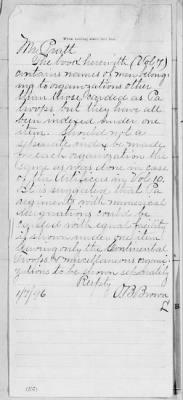 Mr Pratt
The book herewith (Vol 4)
contains names of men belong
ing to organizations other
than those carded as Pa
troops, but they have all
been indexed under one
item. Should not a
separate index be made
for each organization the
same as was done in case
of the
is suggested that Pa
regiments with numerical
designations could be
with equal facility
if shown under one item
leaving only the Continental
troops & miscellaneous organi
zations to be shown separately
Respty
1/7/96 Brown